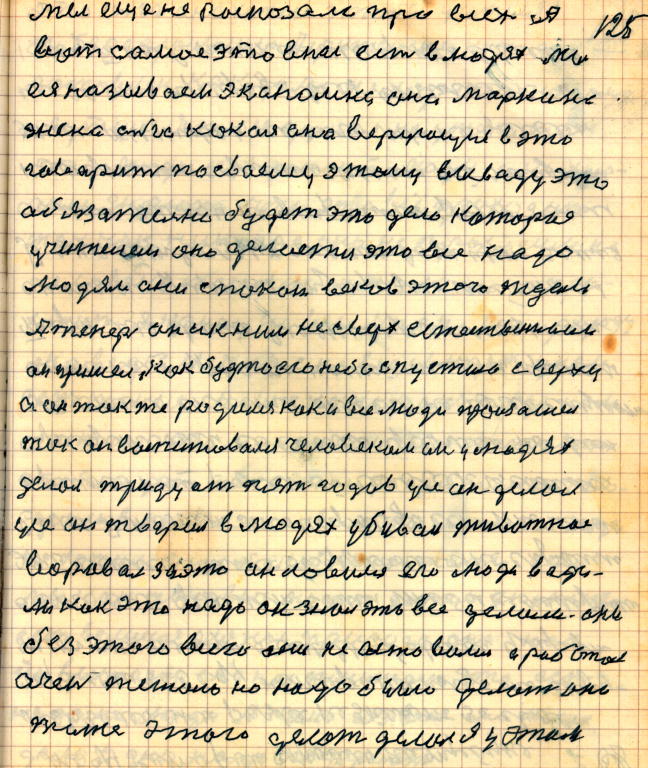 мы еще не росказали про всех я
125
вот самое это в ны ест в людях мы
ея называем экапомка она Маркина
жена
кокая она верующия в это
говарит по сваему этому вываду это
абязателно будет это дело которая
учителем оно делаетца это все надо
людям они споком веков этого ждали
А тепер он
к ним не сверх естественным
он пришел, как будто его небо спустило с верху
а он также родился как и все люди произашел
так он васпитовался человеком он у людях
делал тридцат пят годов усе он делал
усе он тварил в людях убивал животное
воровал за это он ловился его люди вади-
ли как это надо он знал это все делали. они
без этого всего они не астовалис а работал
очен тежоло но надо было делат оно
тоже этого делат делал я у этом